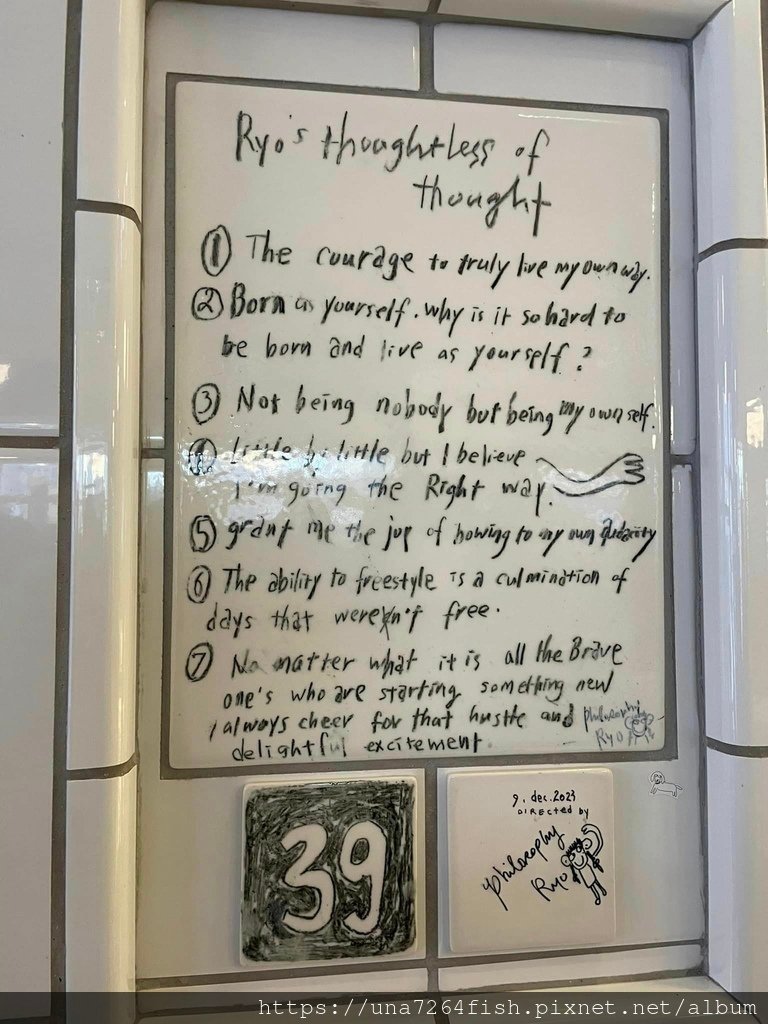 Ryo's thoughtless of
thought
① The courage to truly live my own way.
② Born as yourself. why is it so hard to
be born and live as yourself?
③ Not being nobody but being my own self.
④ Little by little but I believe
I'm going the Right way.
⑤ grant me the joy of bowing to my own audacity
⑥ The ability to freestyle is a culmination of
days that weren't free.
⑦ No matter what it is all the Brave
one's who are starting something new
I always cheer for that hustle and
delightful excitement.
philosophy
Ryo
39
9. dec. 2023
DIRECTED by
philosophy
Ryo
https://una7264fish.pixnet.net/album